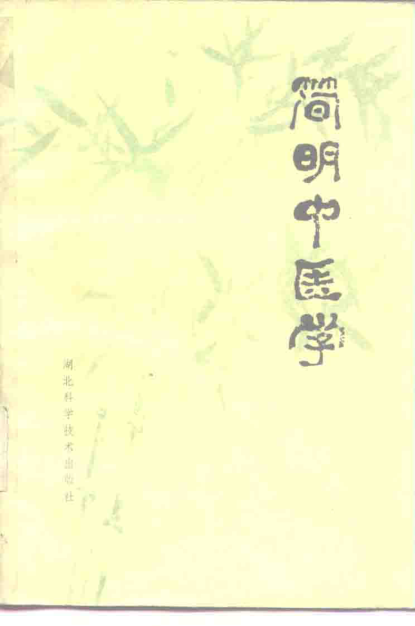 简明中医学
湖北科学技术出版社